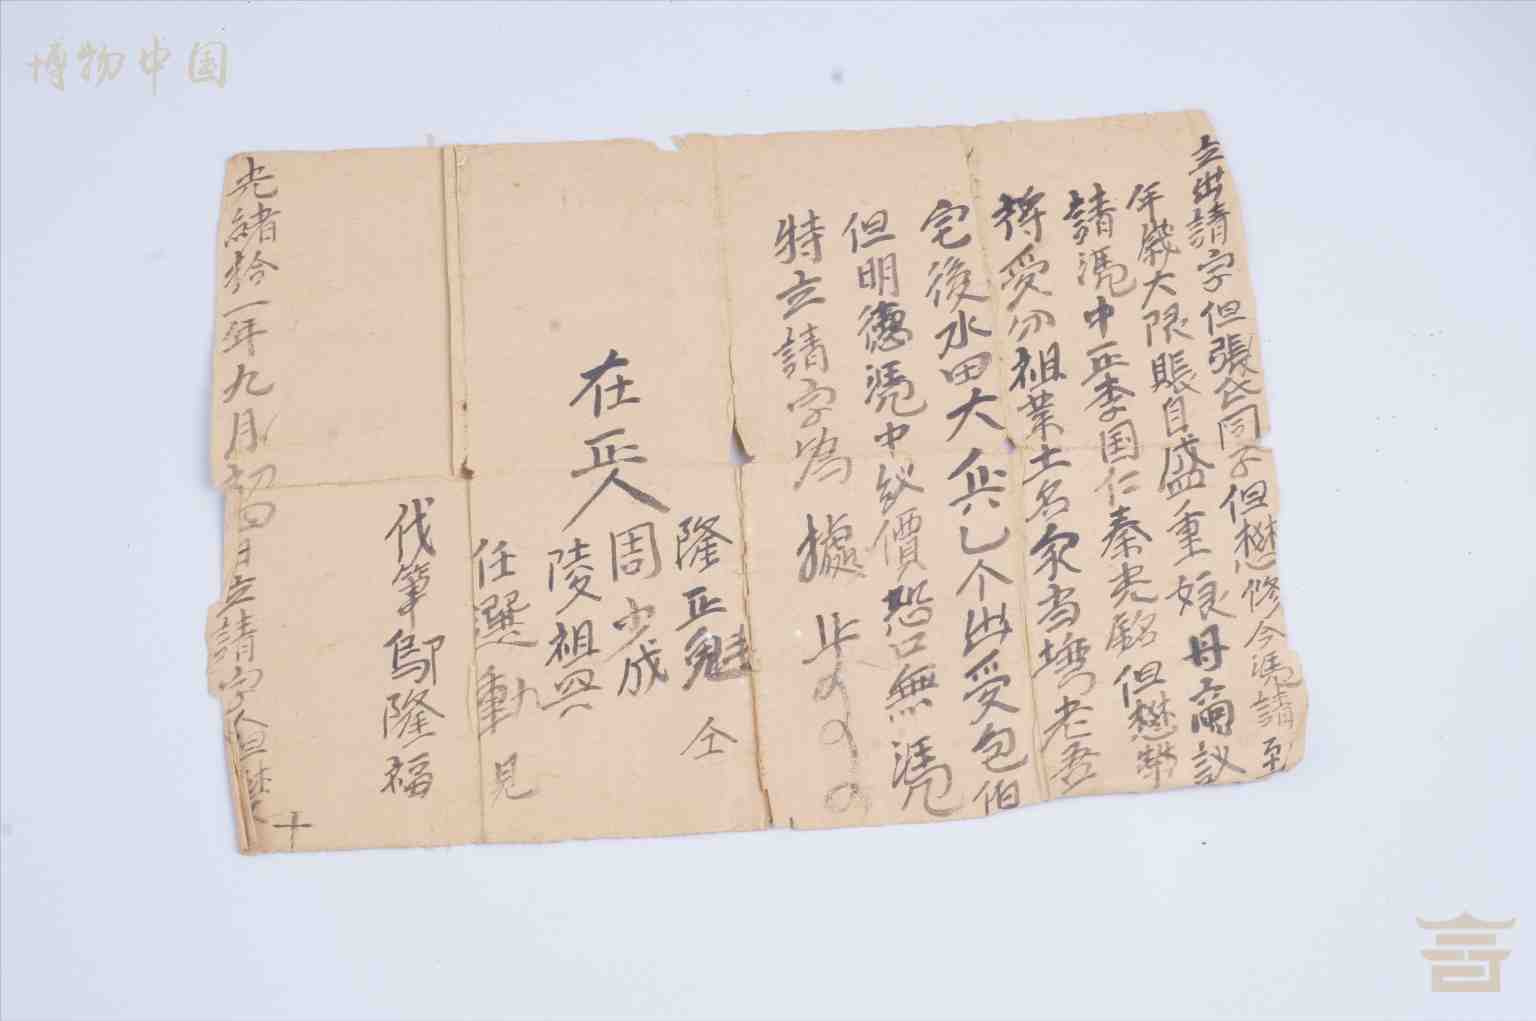 博物中国
立出請字但張氏同子但懋修今凴請到
年歲大限賬自盛重娘母啇議
請凴中正李国仁秦光銘但懋
将受分祖業土名家当塆老吾
宅後水田大乙个出受包伯
但明德凴中议價恐口無凴
特立請字為據
在正人
隆正魁
周少成
陵祖興
任選動
仝
見
伐筆鄔隆福
光緒拾一年九月初四日立請字人但懋
十